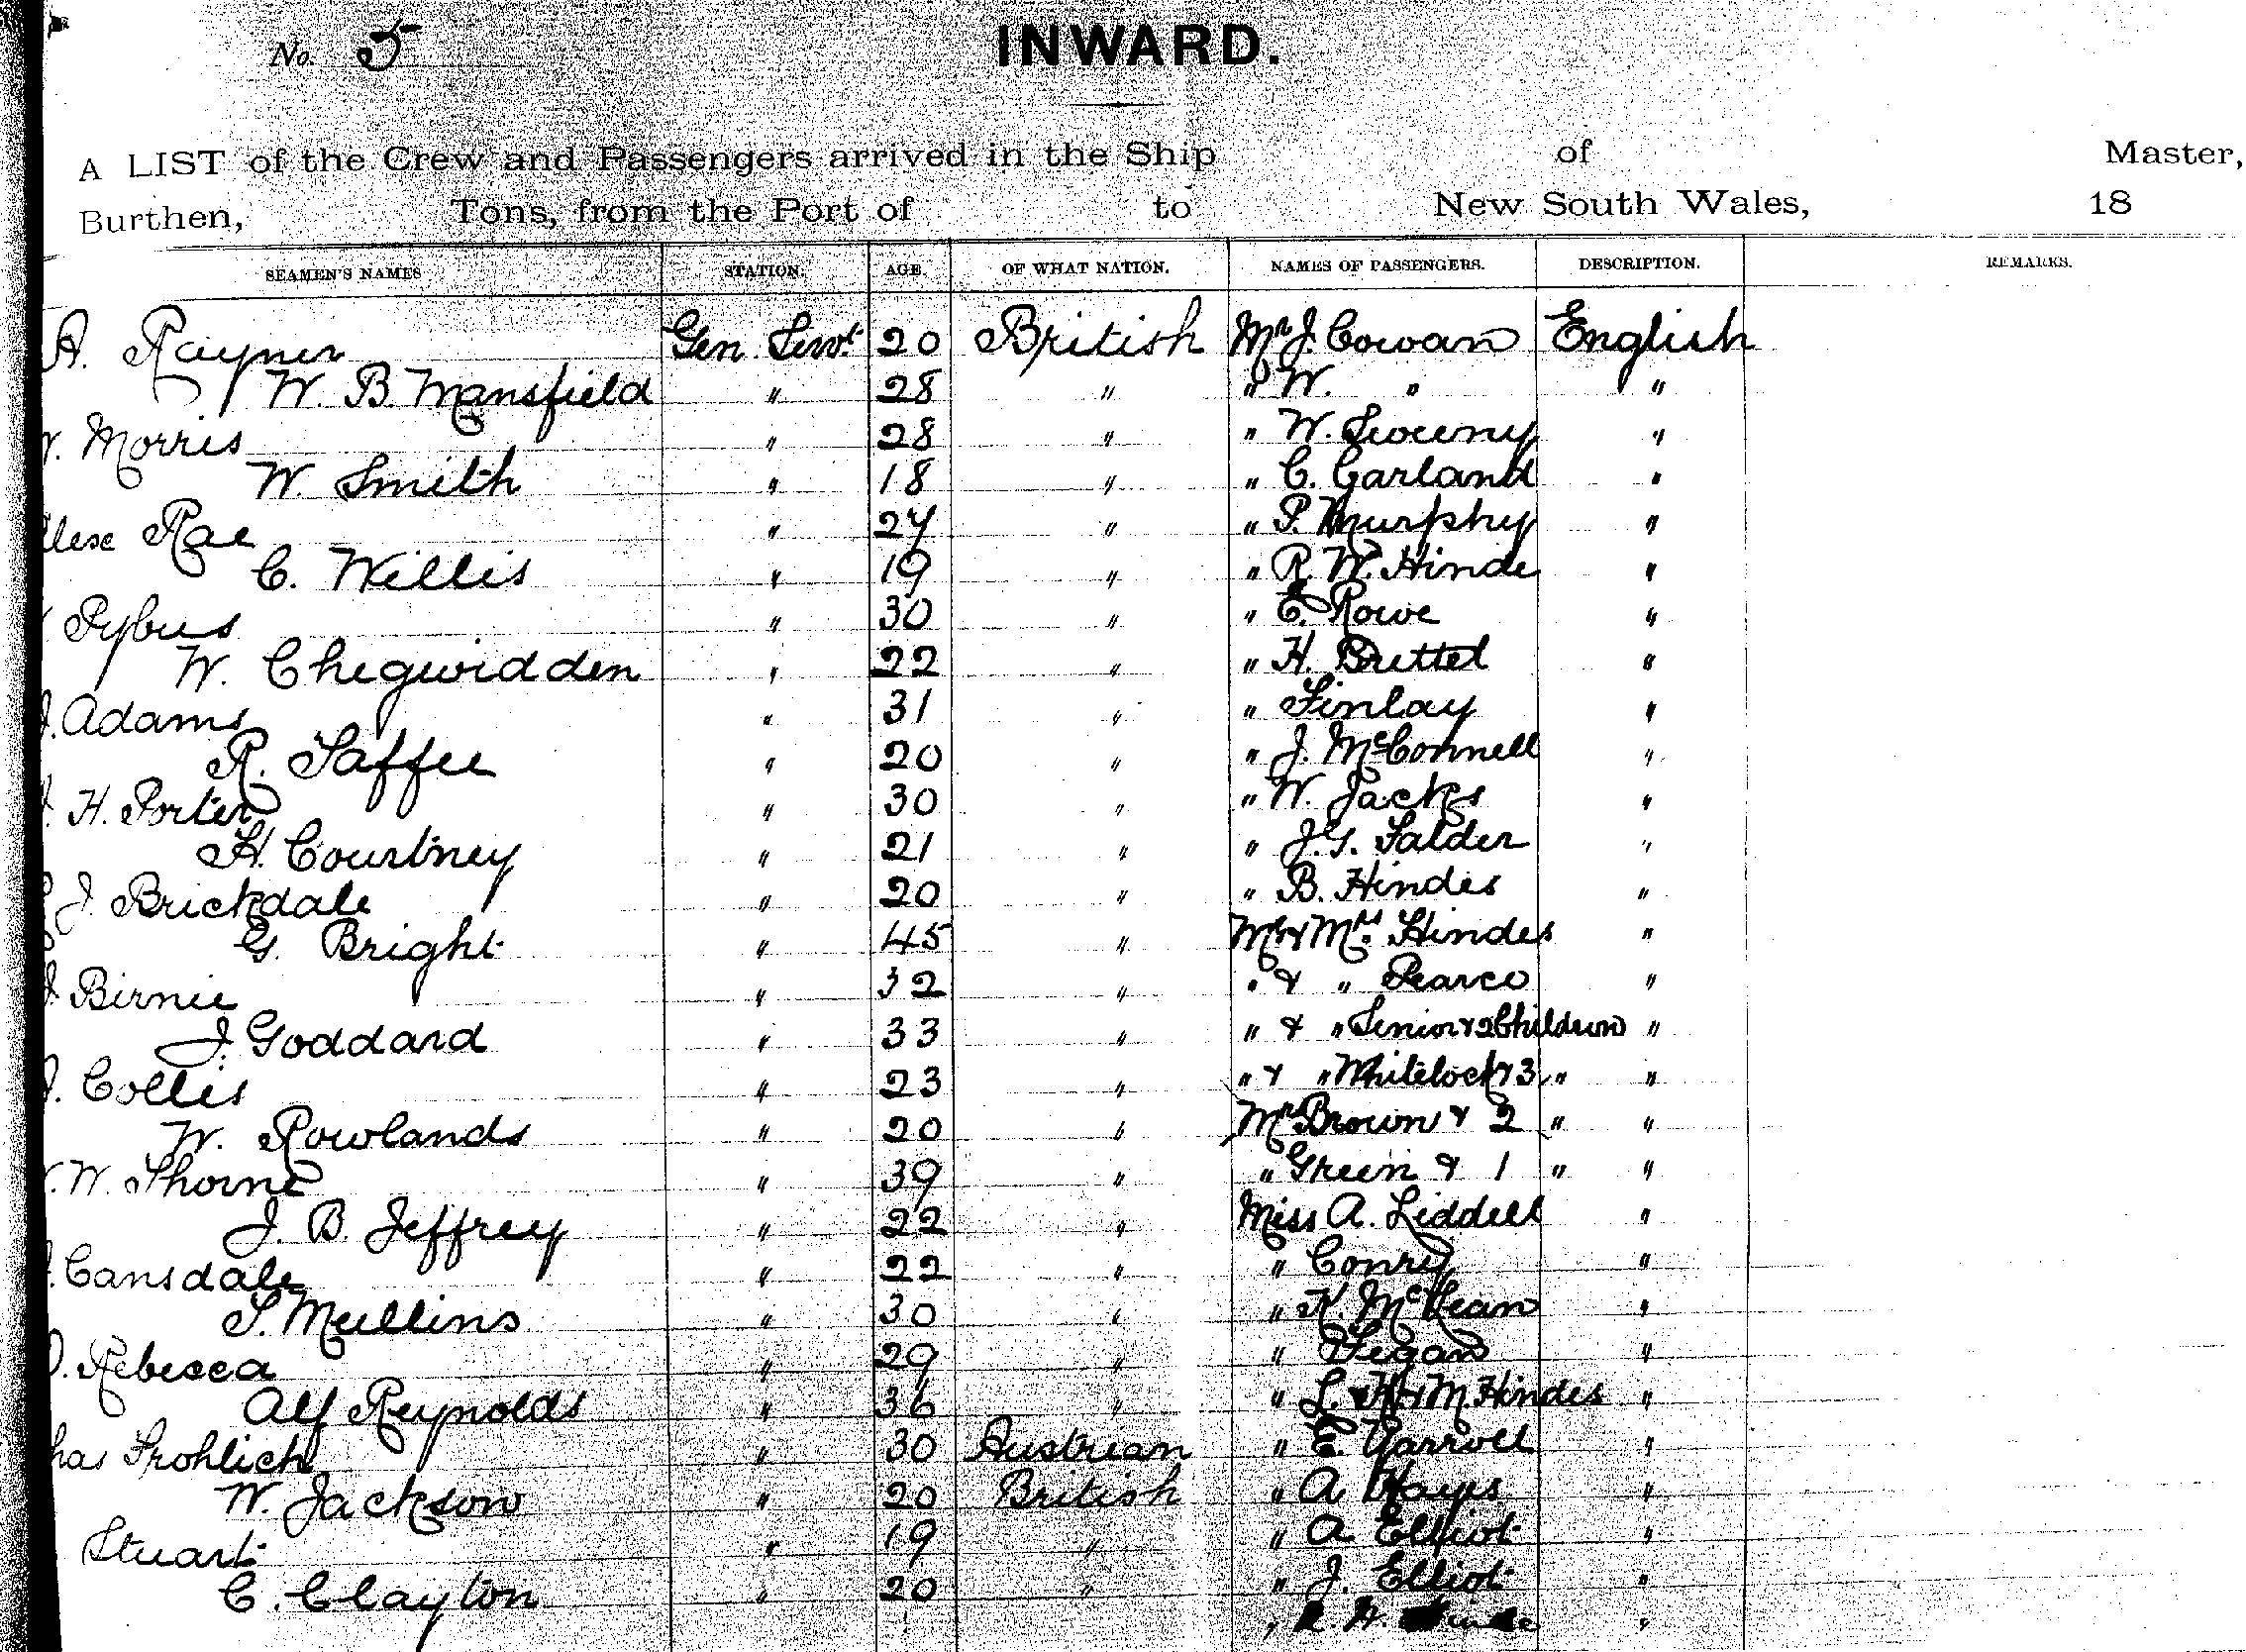 No. 5
INWARD.
A LIST of the Crew and Passengers arrived in the Ship of Master,
Burthen, Tons, from the Port of to New South Wales, 18
SEAMEN'S NAMES STATION. AGE. OF WHAT NATION. NAMES OF PASSENGERS. DESCRIPTION. REMARKS.
A. Rayner Gen. Servt. 20 British Mr J. Cowan English
W. B. Mansfield " 28 " " W. " "
Morris " 28 " " W. Sweeny "
W. Smith " 18 " " C. Garland "
Rae " 24 " " P. Murphy "
C. Willis " 19 " " R. W. Hinde "
Pybus " 30 " " E. Rowe "
W. Chegwidden " 22 " " H. Brettel "
J. Adams " 31 " " Finlay "
R. Taffee " 20 " " J. McConnell "
H. Porter " 30 " " W. Jacks "
H. Courtney " 21 " " J. G. Salder "
J. Brickdale " 20 " " B. Hindes "
G. Bright " 45 " Mr & Mrs. Hindes "
J. Birnie " 32 " " & " Pearce "
J. Goddard " 33 " " & " Senior & 2 Children "
Collis " 23 " " & " Whitelock & 3 " "
W. Rowlands " 20 " Mrs Brown & 2 " "
W. Thorne " 39 " " Green & 1 " "
J. B. Jeffrey " 22 " Miss A. Liddell "
Cansdale " 22 " " Conry "
S. Mullins " 30 " " K. McVean "
Rebecca " 29 " " Fegan "
Alf Reynolds " 36 " " L. H & M Hindes "
has Frohlich " 30 Austrian " E. Carroll "
W. Jackson " 20 British " A Hayes "
Stuart " 19 " " A Elliot "
C. Clayton " 20 " " J. Elliot "
" R. H. "